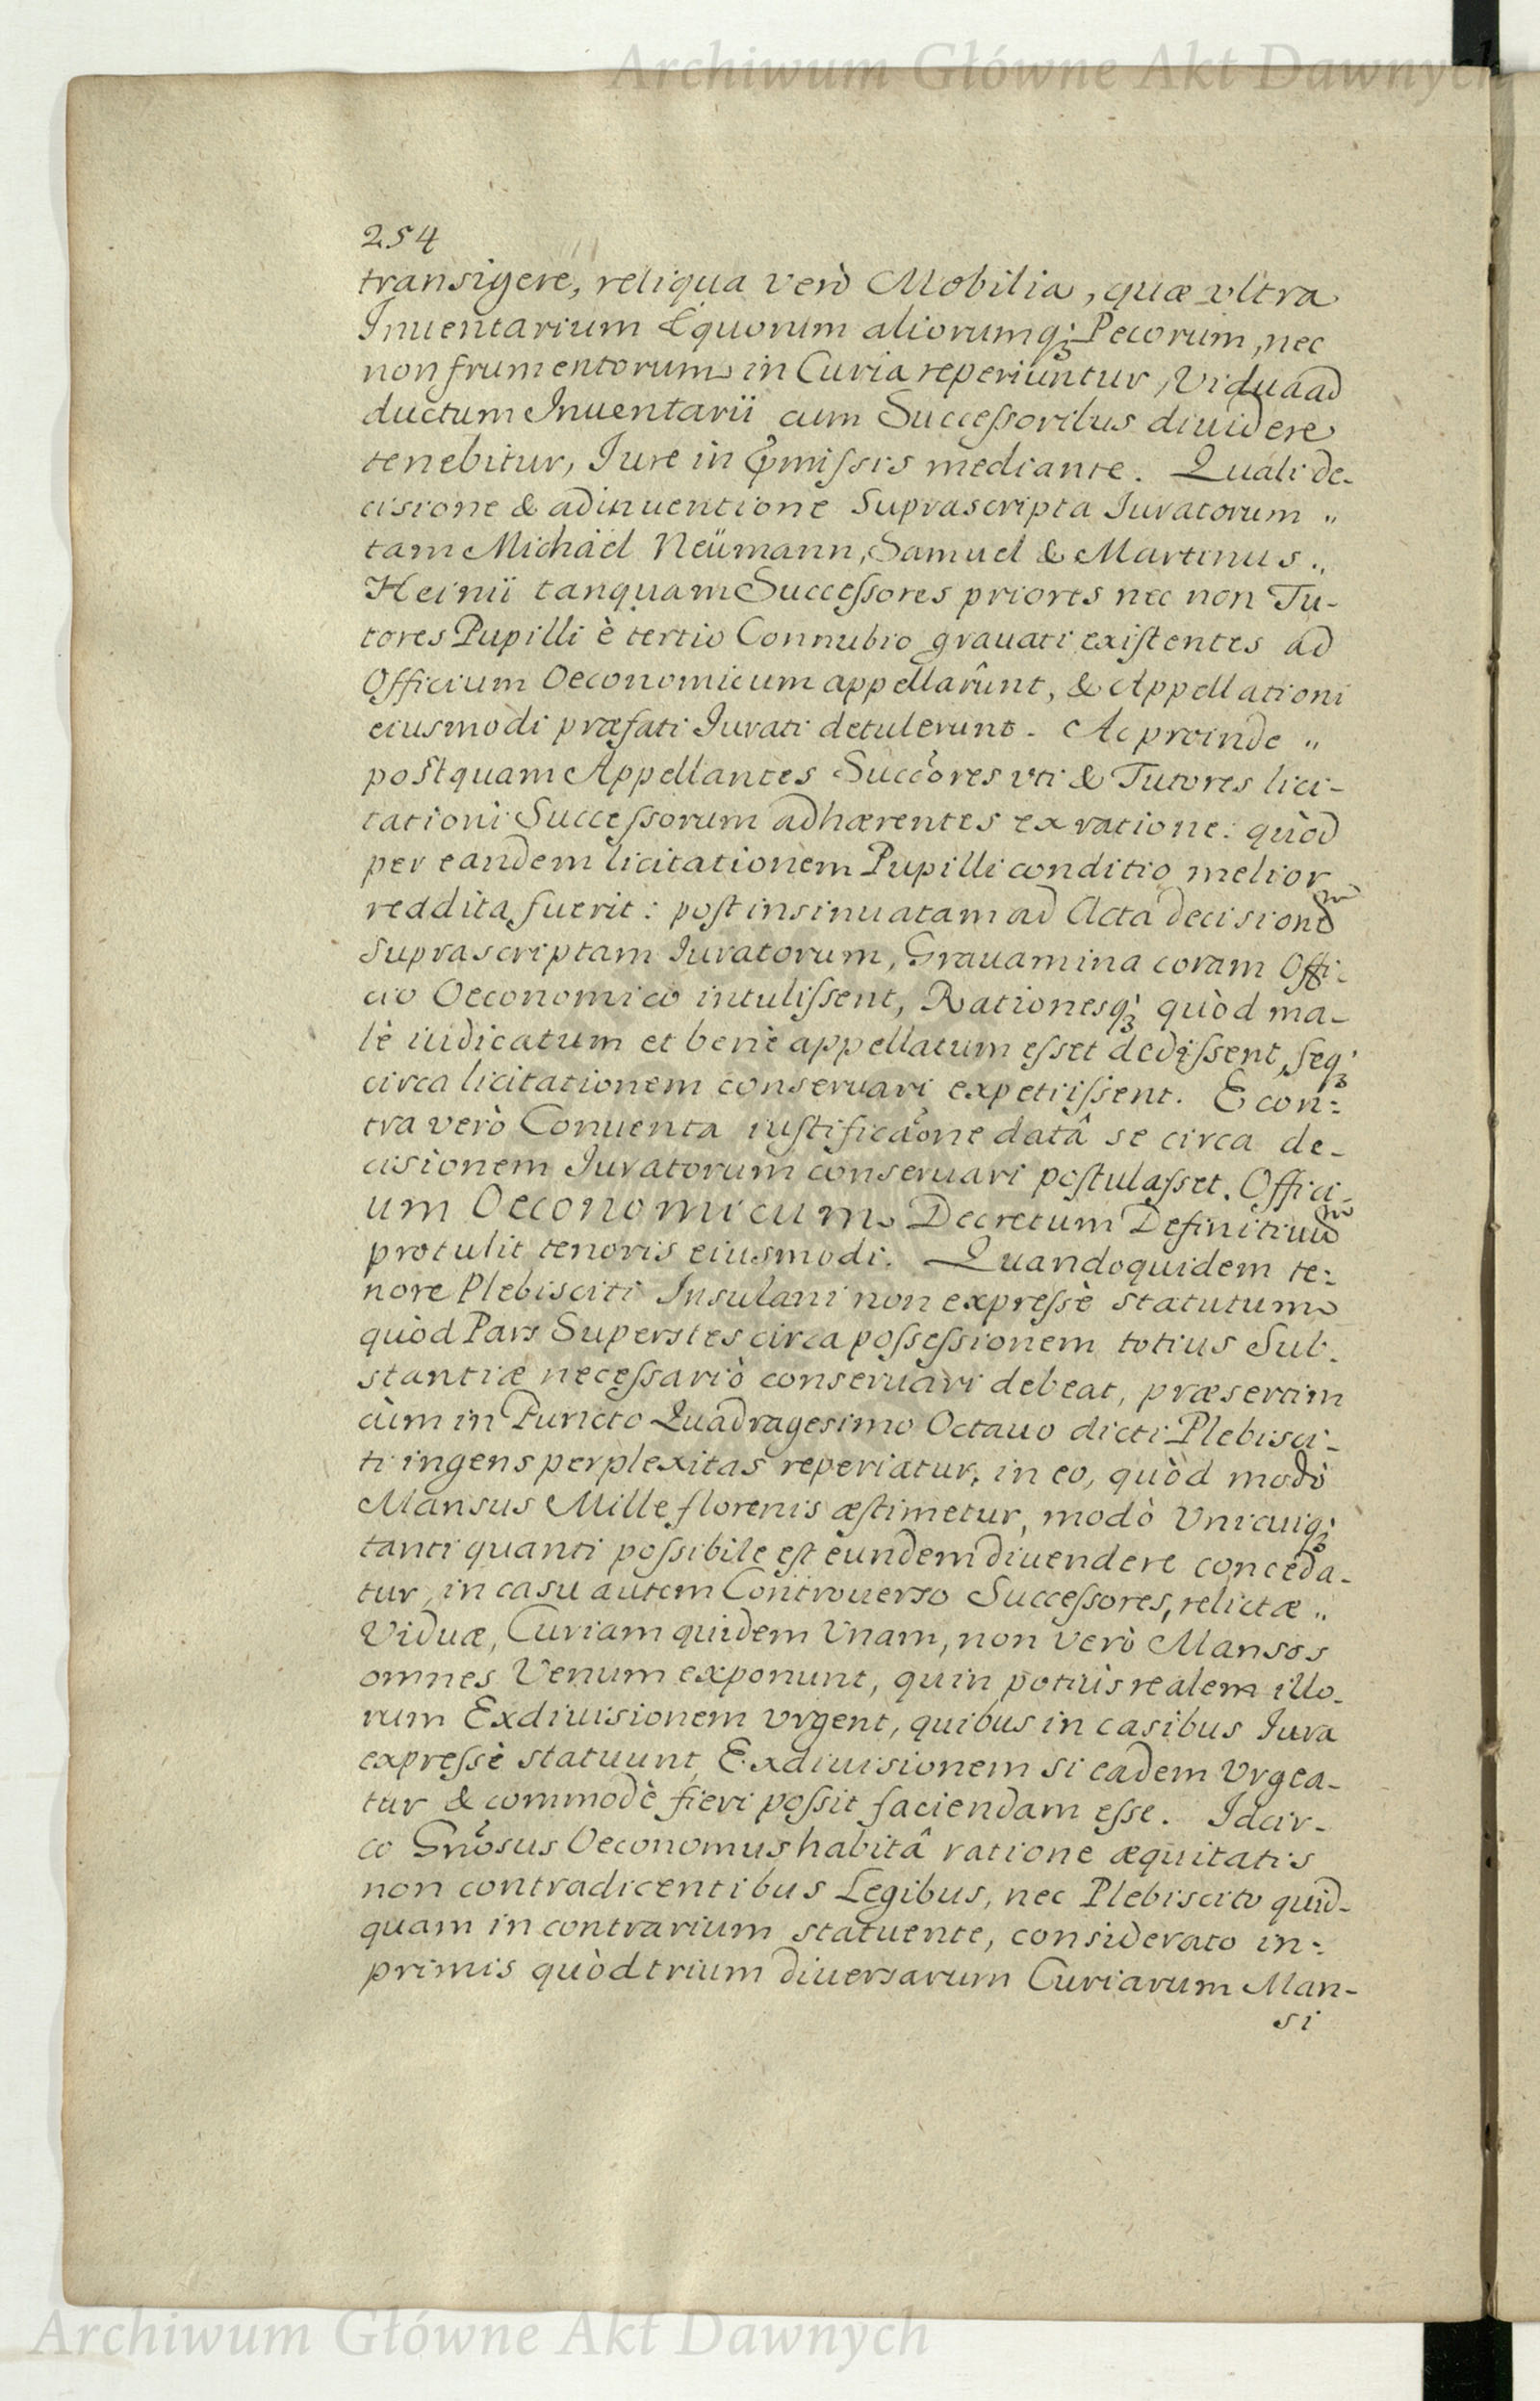 Archiwum Główne Akt Dawnych
254
transigere, reliqua verò Mobilia, quæ vltra
Inuentarium Equorum aliorumq; Pecorum, nec
non frumentorum in Curia reperiuntur, Vidua ad
ductum Inuentarii cum Succeſsoribus diuidere
tenebitur, Iure in p̄miſsis mediante. Quali de-
cisione & adinuentione Suprascripta Iuratorum „
tam Michäel Neümann, Samuel & Martinus „
Heinii tanquam Succeſsores priores nec non Tu-
tores Pupilli è tertio Connubio grauati exiſtentes ad
Officium Oeconomicum appellarûnt, & Appellationi
eiusmodi præfati Iurati detulerunt. Ac proinde „
poſtquam Appellantes Succ̃ores vti & Tutores lici-
tationi Succeſsorum adhærentes ex ratione: quòd
per eandem licitationem Pupilli conditio melior
reddita fuerit: poſt insinuatam ad Acta decisionem
Suprascriptam Iuratorum, Grauamina coram Offi-
cio Oeconomico intuliſsent, Rationesq; quòd ma-
lè iudicatum et benè appellatum eſset dediſsent, ſeq;
circa licitationem conseruari expetiiſsent. E con:
tra verò Conuenta iuſtificãone datâ se circa de-
cisionem Iuratorum conseruari poſtulaſset. Offici-
um Oeconomicum Decretum Definitiuum
protulit tenoris eiusmodi. Quandoquidem te:
nore Plebisciti Insulani non expreſsè statutum
quòd Pars Superstes circa poſseſsionem totius Sub-
stantiæ neceſsariò conseruari debeat, præsertim
cùm in Puncto Quadragesimo Octauo dicti Plebisci-
ti ingens perplexitas reperiatur, in eo, quòd modò
Mansus Mille florenis æſtimetur, modò Vnicuiq;
tanti quanti poſsibile eſt eundem diuendere conceda-
tur, in casu autem Controuerso Succeſsores, relictæ „
Viduæ, Curiam quidem Vnam, non verò Mansos
omnes Venum exponunt, quin potiùs realem illo-
rum Exdiuisionem vrgent, quibus in casibus Iura
expreſsè statuunt, Exdiuisionem si eadem Vrgea-
tur & commodè fieri poſsit faciendam eſse. Idcir-
co Gnõsus Oeconomus habitâ ratione æquitatis
non contradicentibus Legibus, nec Plebiscito quid-
quam in contrarium statuente, considerato in:
primis quòd trium diuersarum Curiarum Man-
si
Archiwum Główne Akt Dawnych